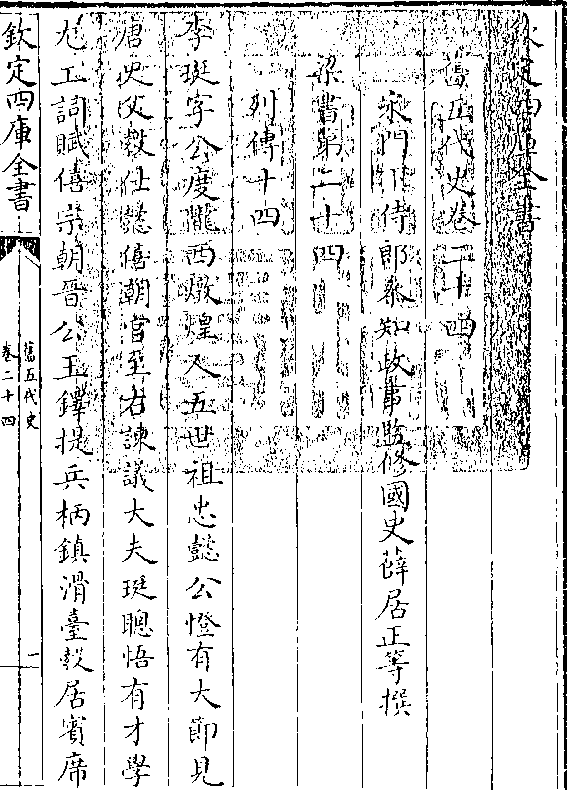 欽定四庫全書
舊五代史卷二十四
宋門下侍郎叅知政事監修國史薛居正等撰
梁書第二十四
列傳十四
李珽字公度隴西燉煌人五世祖忠懿公憕有大節見
唐史父縠仕懿僖朝官至右諫議大夫珽聰悟有才學
尤工詞賦僖宗朝晉公王鐸提兵柄鎮滑臺縠居賓席
欽定四庫全書
舊五代史
卷二十四
一